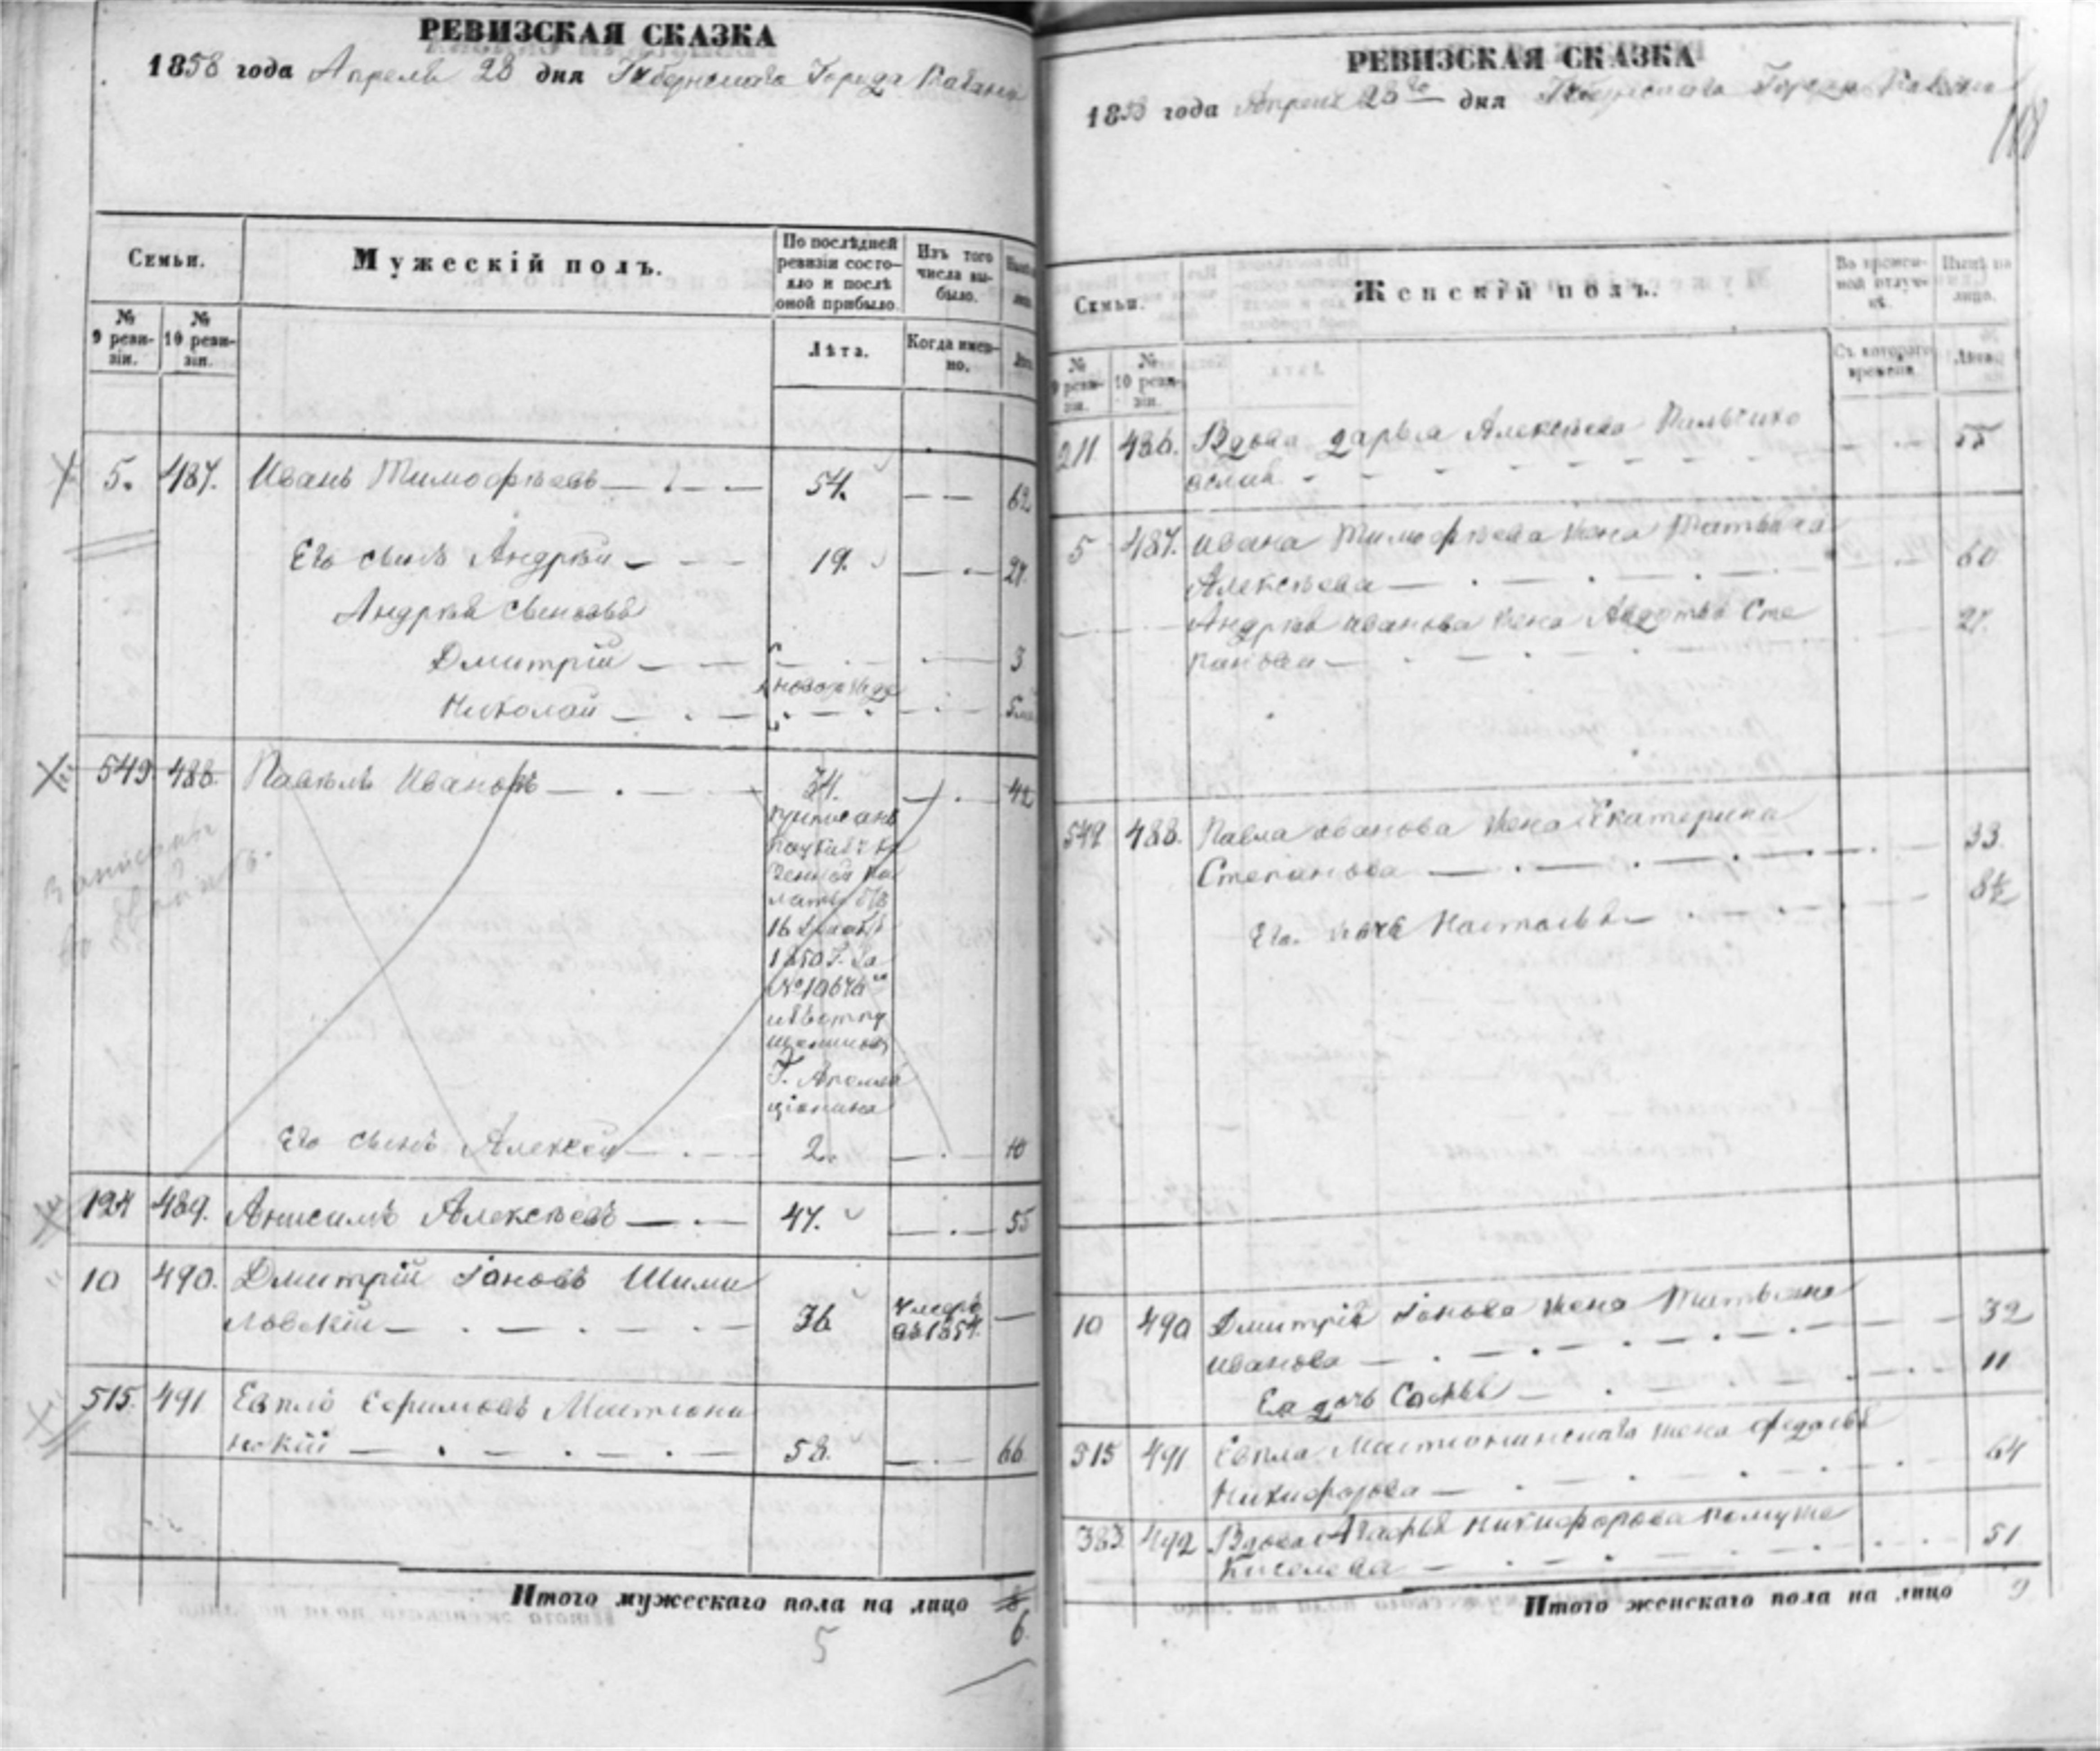 РЕВИЗСКАЯ СКАЗКА
1858 года Апреля 28 дня Губернскаго Города Казани
Семьи.
Мужескій полъ.
По послѣдней ревизіи состояло и послѣ оной прибыло.
Изъ того числа выбыло.
№ 9 ревизіи.
№ 10 ревизіи.
Лѣта.
Когда именно.
5. 487. Иванъ Тимофѣевъ 54. 62
Его сынъ Андрѣй 19. 27.
Андрѣя сыновья
Дмитрій 3
новорожде
Николай
549 488. Павелъ Ивановъ 34. 42
приписанъ
по указу Ка
зенной Па
латы
16
1850 Г. За
№ 10676
Г.
Его сынъ Алексѣй 2. 10
Записаны
124 489. Анисимъ Алексѣевъ 47. 55
10 490. Дмитрій Іоновъ Шими
ловскій 36 Умеръ
въ 1854.
515. 491 Евплъ Ефимовъ Мистюки
нскій 58. 66
Итого мужескаго пола на лицо 8
6.
5
РЕВИЗСКАЯ СКАЗКА
1858 года Апреля 28го дня Губернскаго Города Казани
Семьи.
Женскій полъ.
Во временной отлучкѣ.
Нынѣ на лицо.
№ 9 ревизіи.
№ 10 ревизіи.
Съ котораго времени.
Лѣта.
211. 486. Вдова Дарья Алексѣева Пальчико
55
5 487. Ивана Тимофѣева жена Татьяна
Алексѣева 60
Андрѣя Иванова жена Авдотья Сте
панова 27.
549 488. Павла Иванова жена Екатерина
Степанова 33.
Его дочь Настасья 8½
10 490 Дмитрія Іонова жена Татьяна
Иванова 32
Ея дочь Софья 11
515 491 Евпла Мистюкинскаго жена Федосья
Никифорова 64
383. 492 Вдова Агафья Никифорова по мужѣ
Киселева 51
Итого женскаго пола на лицо 9